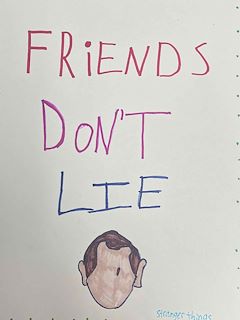 FRiENDS
DON'T
LIE
stranger things